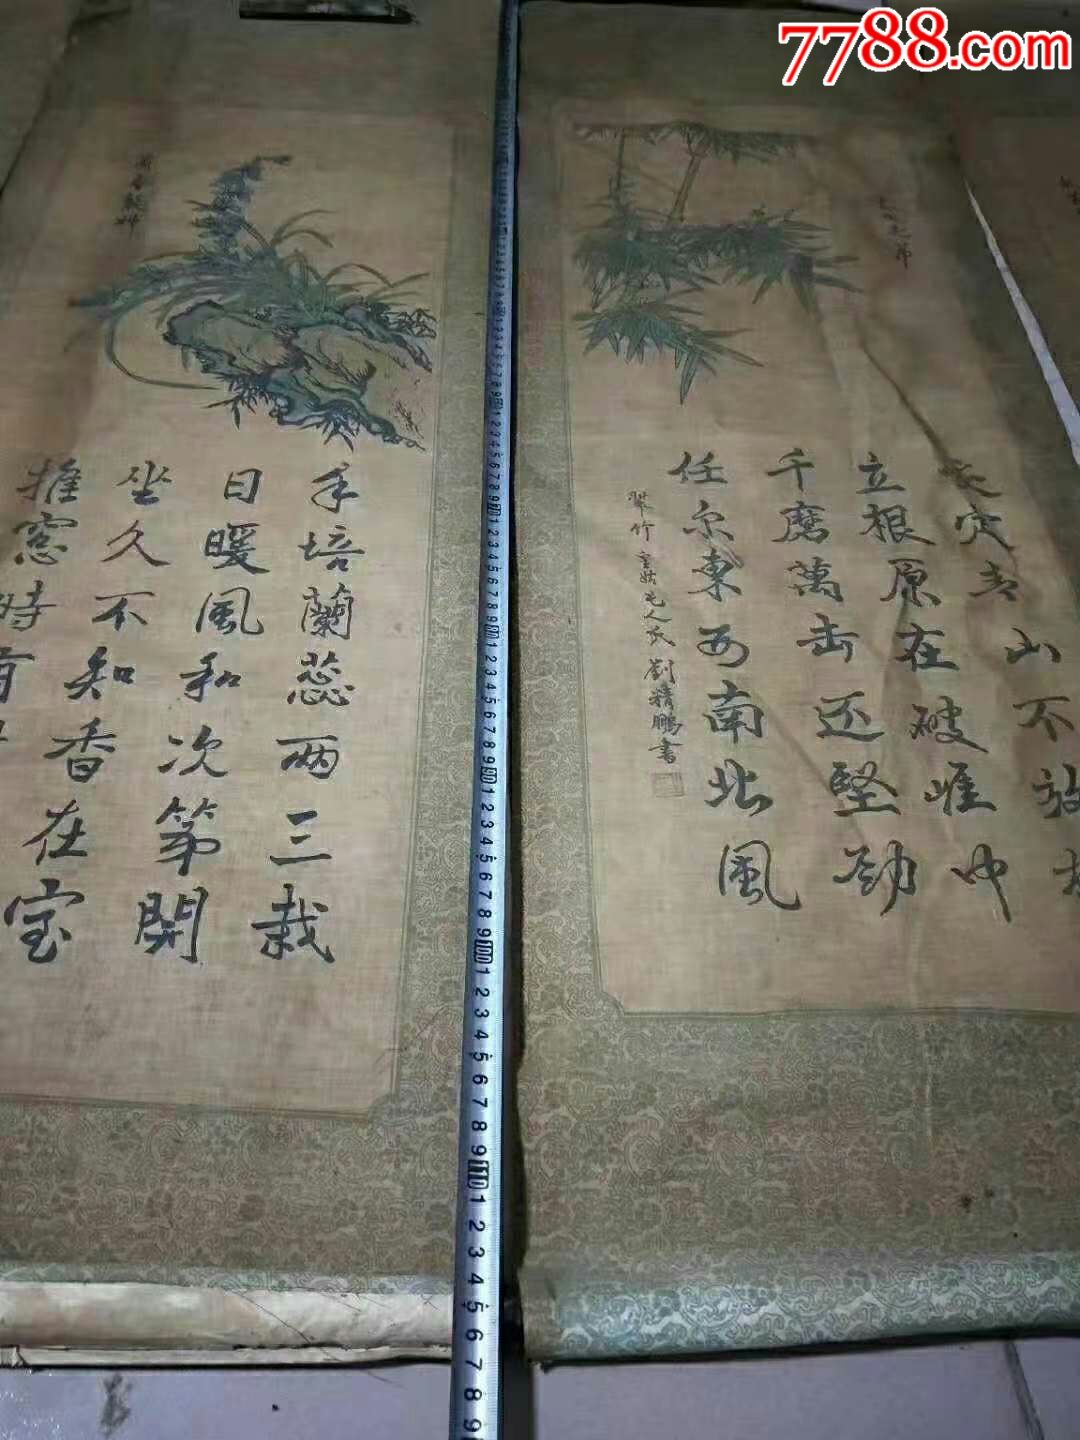 7788.com
定青山不放
立根原在破崖中
千磨萬击还堅劲
任尔東西南北風
翠竹
劉精鵬書
手培蘭蕊两三栽
日暖風和次第開
坐久不知香在室
推窓時有